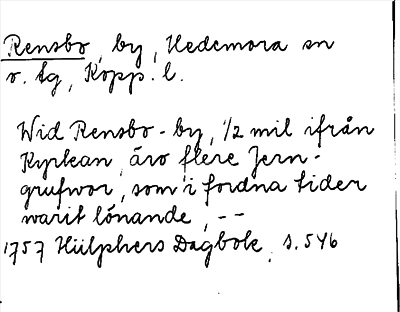 Rensbo, by, Hedemora sn
o. tg, Kopp. l.
Wid Rensbo-by, 1/2 mil ifrån
Kyrkan, äro flere Jern-
grufwor, som i fordna tider
warit lönande, --
1757 Hülphers Dagbok, s. 546